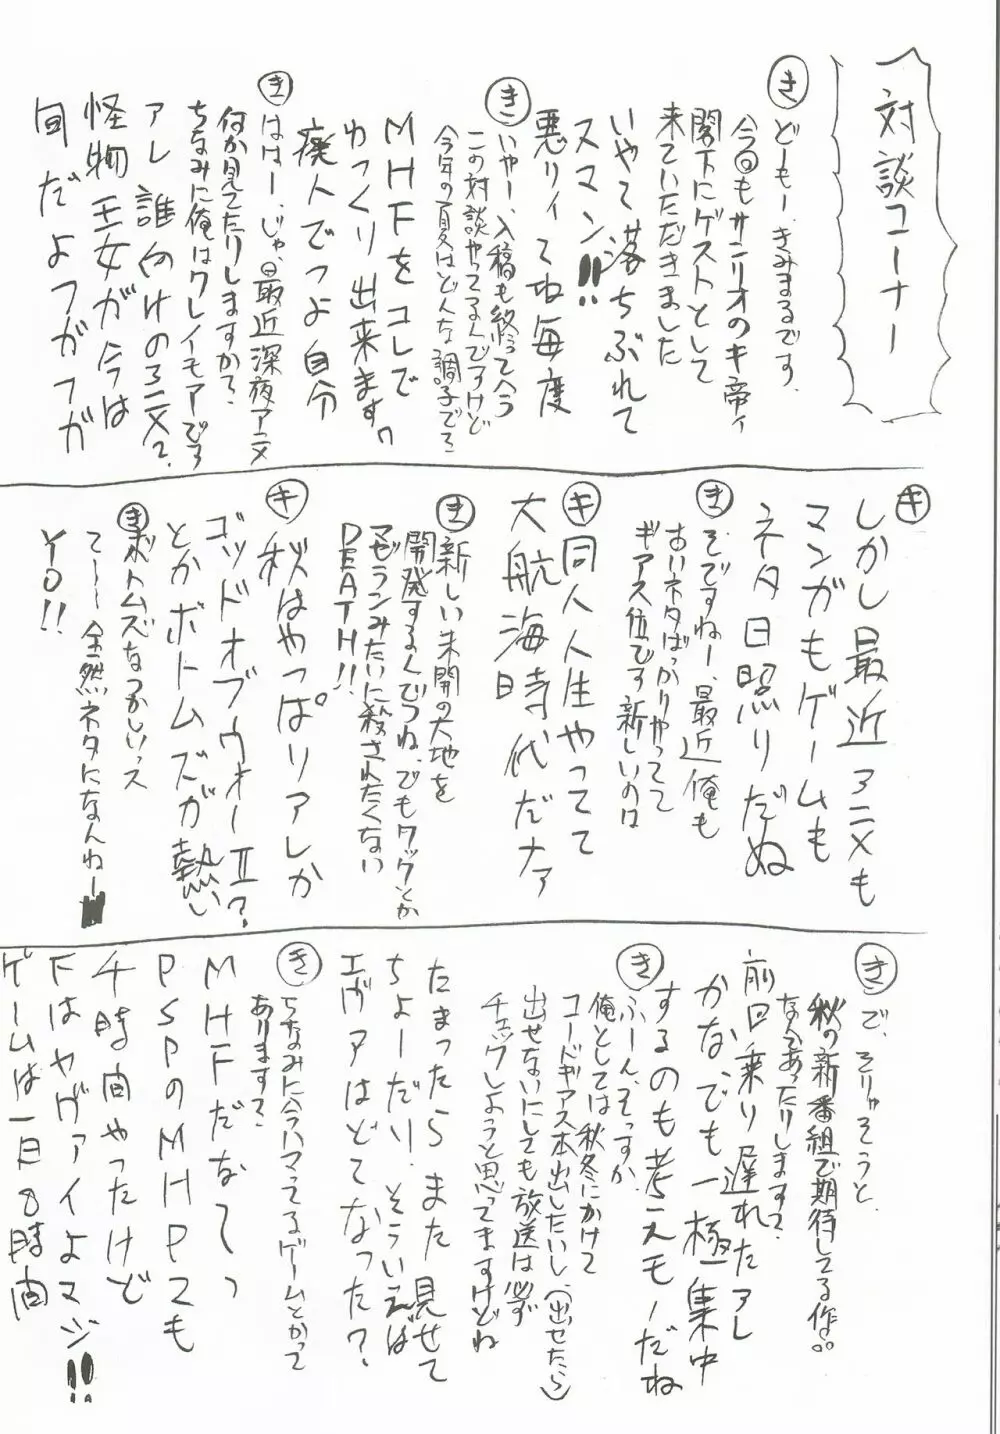 対談コーナー
き どーもー、きみまるです。
今回もサンリオのキ帝ィ
閣下にゲストとして
来ていただきました
いやて落ちぶれて
スマン!!
悪リィてね毎度
き いやー、入稿も終ってへう
この対談やってるんですけど
今年の夏はどんな調子でろ
MHFをコレで
ゆっくり出来ます
廃人でつよ自分
き はは、じゃ、最近深夜アニメ
何か見てたりしますか?
ちなみに俺はクレイモアでろ
アレ誰向けのアニメ?
怪物王女が今は
旬だよフガフガ
キ しかし最近アニメも
マンガもゲームも
ネタ日照りだぬ
き そですねー、最近俺も
古いネタばっかりやってて
ギアス位です新しいのは
キ 同人人生やってて
大航海時代だナァ
き 新しい未開の大地を
開発するんでつね、でもクックとか
マゼランみたいに殺されたくない
DEATH!!
キ 秋はやっぱリアレか
ゴッドオブウォーII?
とかボトムズが熱い
き ボトムズなつかしいっス
て〜〜全然ネタになんねー
YO!!
き で、そりゃそうと、
秋の新番組で期待してる作品
なんてあったりします?
前回乗り遅れたアレ
かな、でも一極集中
するのも考えモノだね
き ふーん、そっすか
俺としては秋冬にかけて
コードギアス本出したいし、(出せたら)
出せないにしても放送は必ず
チェックしようと思ってますけどね
たまったらまた見せて
ちょーだい、そういえば
エヴァはどてなった?
き ちなみに今ハマってるゲームとかって
あります?
MHFだなてっ
PSPのMHP2も
千時間やったけど
Fはヤヴァイよマジ!!
ゲームは一日8時間